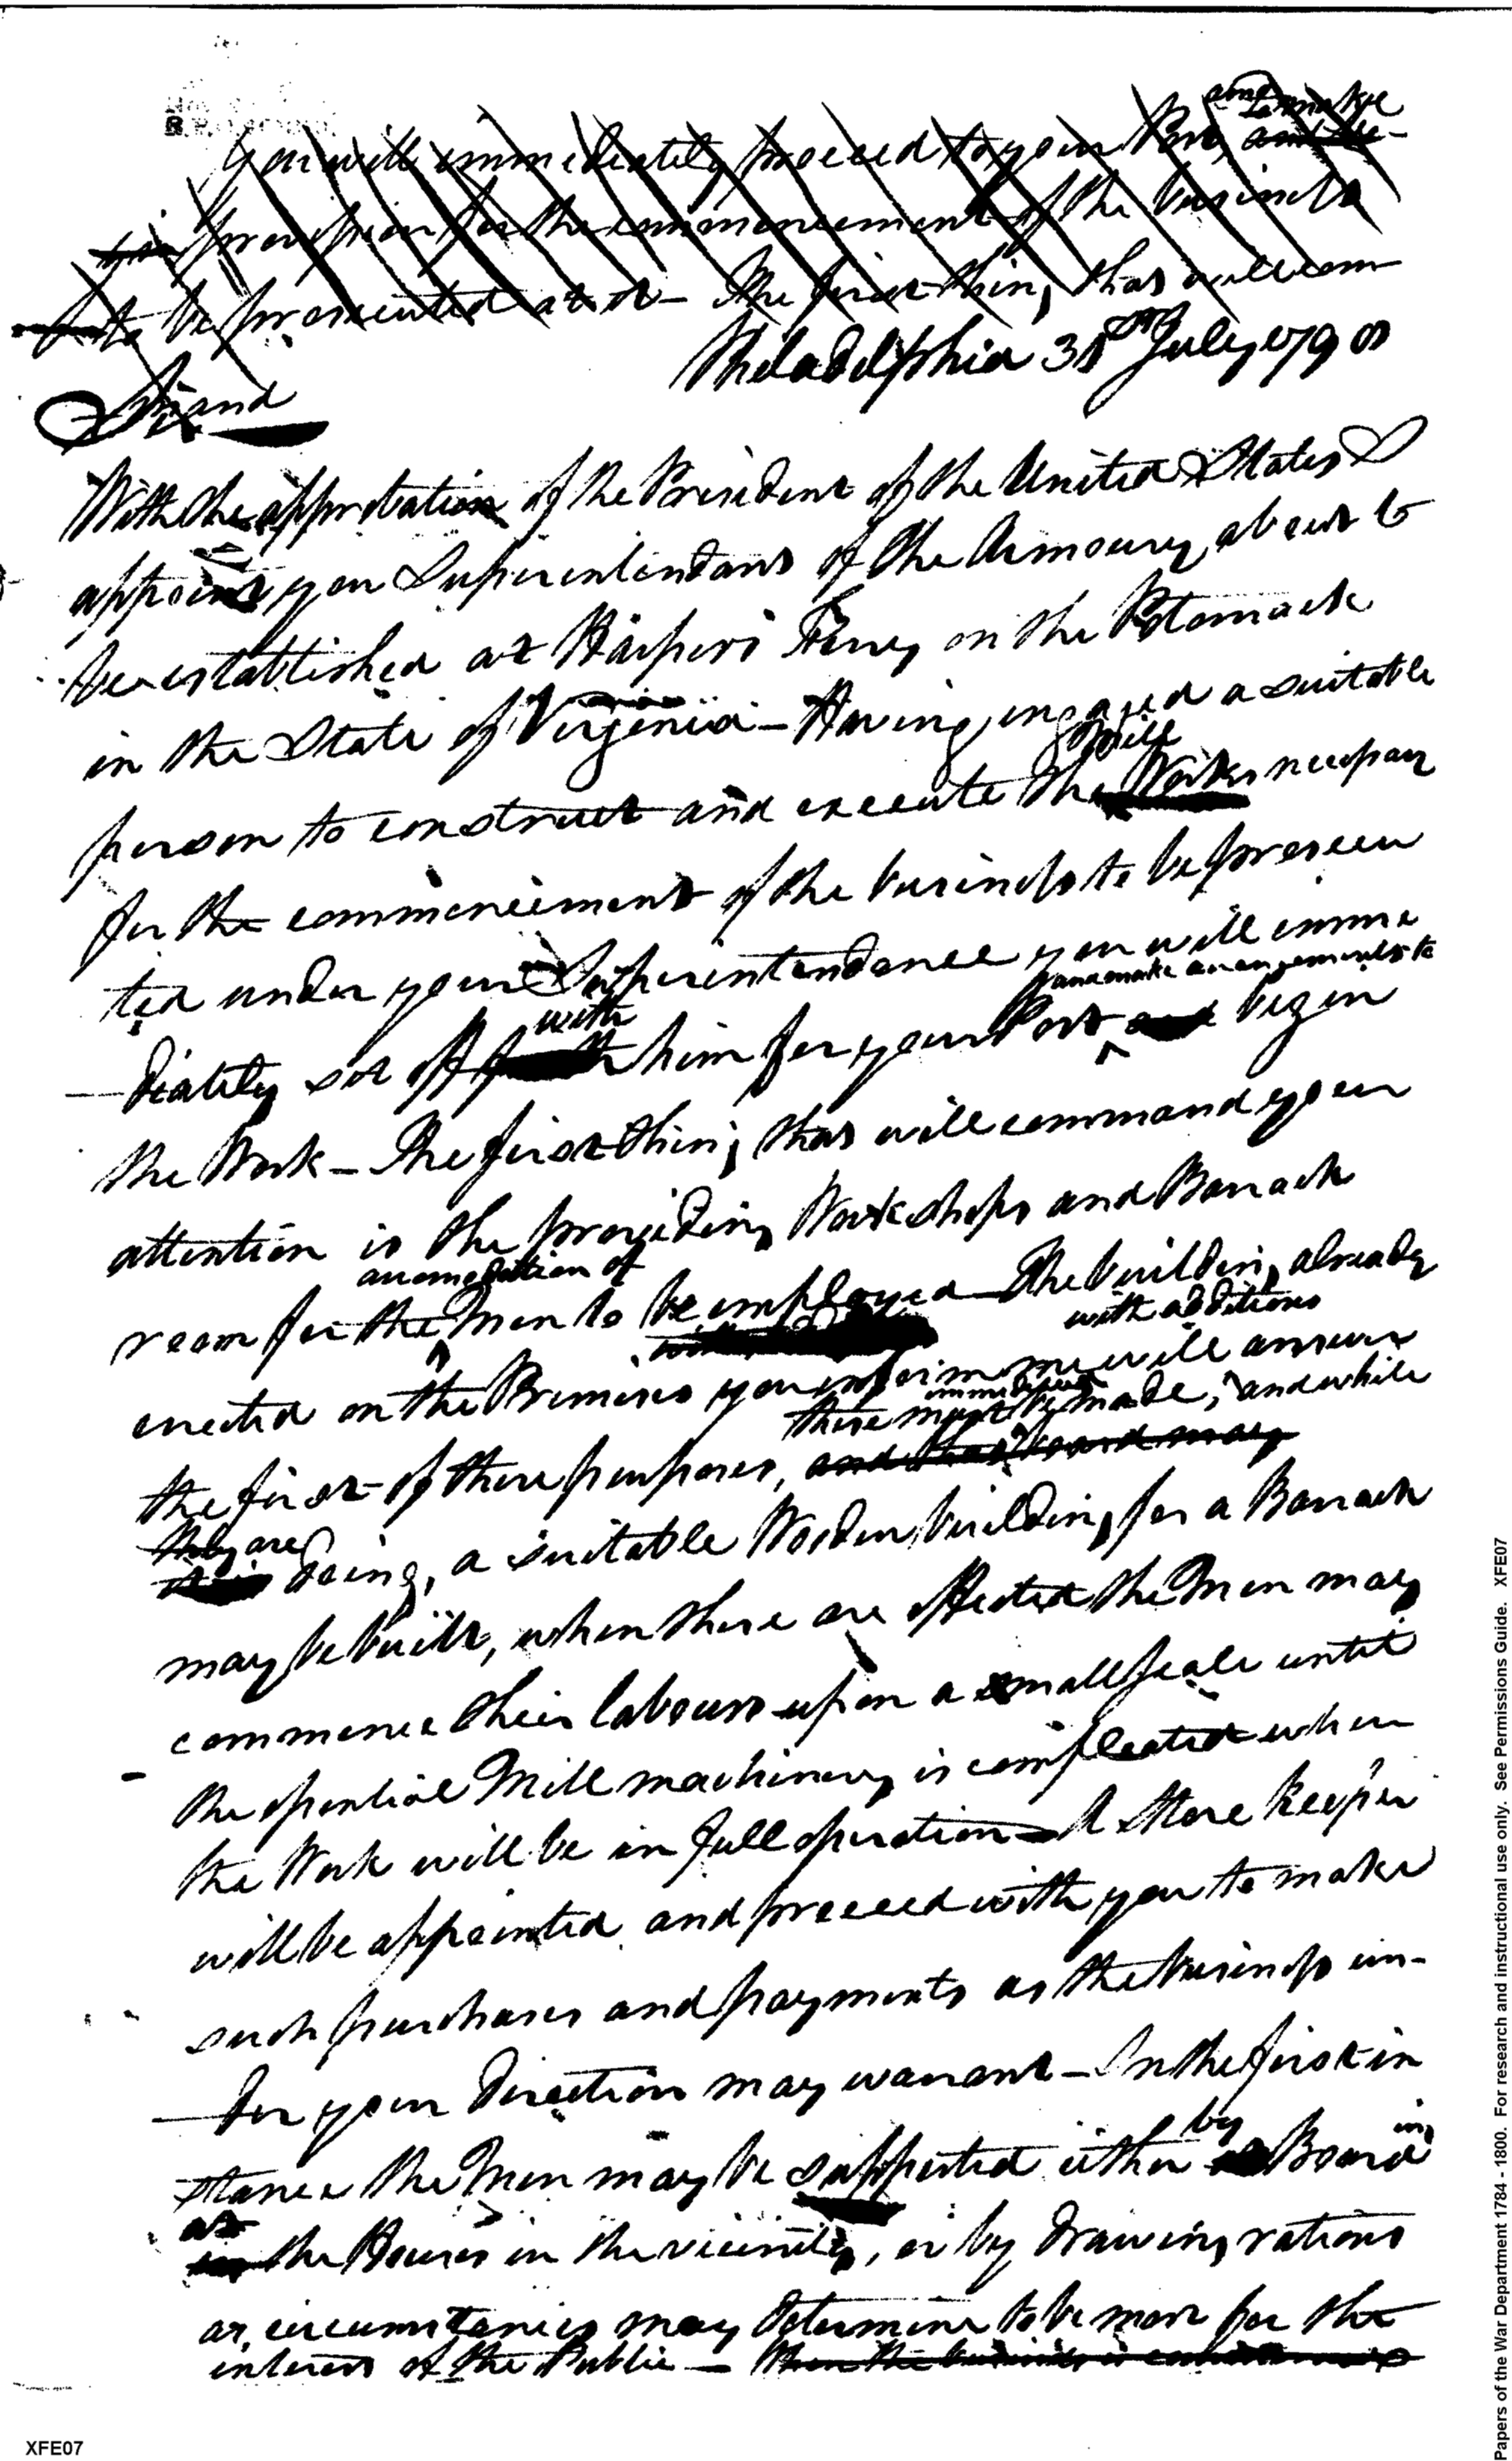 and to make
You will immediately proceed to your Post and
provision for the commencement of the business
to be prosecuted at it - The first thing that will com
mand
Philadelphia 31st July 1798
Sir
With the approbation of the President of the United States I
appoint you Superintendant of the Armoury about to
be established at Harpers Ferry on the Potomack
in the State of Virginia - Having engaged a suitable
Mill
person to construct and execute the Works necessary
for the commencement of the business to be prosecu
ted under your Superintendance you will imme
and make arrangements to
with
diately set off him for your Post begin
the Work - The first thing that will command your
attention is the providing Workshops and Barrack
accomodation of
room for the Men to be employed - The building already
with additions
erected on the Premises you inform me will answer
immediately
these must be made, and while
the first of these purposes, and
they are
doing, a suitable Wooden building for a Barrack
may be built, when these are effected the Men may
commence their labours upon a small scale until
the essential Mill machinery is compleated when
the Work will be in full operation - A Store keeper
will be appointed and proceed with you to make
such purchases and payments as the business un-
der your direction may warrant - In the first in
by
ing
stance the Men may be supported either Board
at
the Houses in the vicinity, or by drawing rations
as circumstances may determine to be most for the
interest of the Public - When the business is
XFE07
Papers of the War Department 1784 - 1800. For research and instructional use only. See Permissions Guide. XFE07